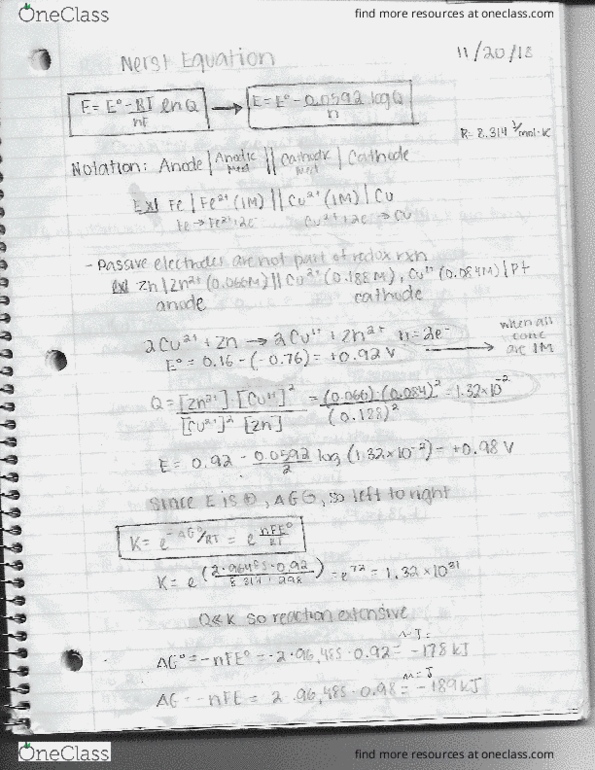 OneClass
find more resources at oneclass.com
Nerst Equation
11/20/18
E = E° - RT/nF lnQ → E = E° - 0.0592/n log Q
R = 8.314 J/mol·K
Notation: Anode | Anodic || Cathodic | Cathode
Ex) Fe | Fe²⁺ (1M) || Cu²⁺ (1M) | Cu
Fe → Fe²⁺ + 2e⁻ Cu²⁺ + 2e⁻ → Cu
- Passive electrodes are not part of redox rxn
Ex) Zn | Zn²⁺ (0.066M) || Cu²⁺ (0.188M), Cu¹⁺ (0.084M) | Pt
anode cathode
2Cu²⁺ + Zn → 2Cu¹⁺ + Zn²⁺ n = 2e⁻
E° = 0.16 - (-0.76) = +0.92 V → when all conc are 1M
Q = [Zn²⁺]·[Cu¹⁺]² / [Cu²⁺]² [Zn] = (0.066)·(0.084)² / (0.128)² = 1.32×10⁻²
E = 0.92 - 0.0592/2 log (1.32×10⁻²) = +0.98 V
since E is ⊕, ΔG ⊖, so left to right
K = e^(-ΔG°/RT) = e^(nFE°/RT)
K = e^(2·96485·0.92 / 8.314·298) = e⁷² = 1.32×10³¹
Q≪K so reaction extensive
ΔG° = -nFE° = -2·96,485·0.92 = -178 kJ
ΔG = -nFE = 2·96,485·0.98 = -189 kJ
OneClass
find more resources at oneclass.com